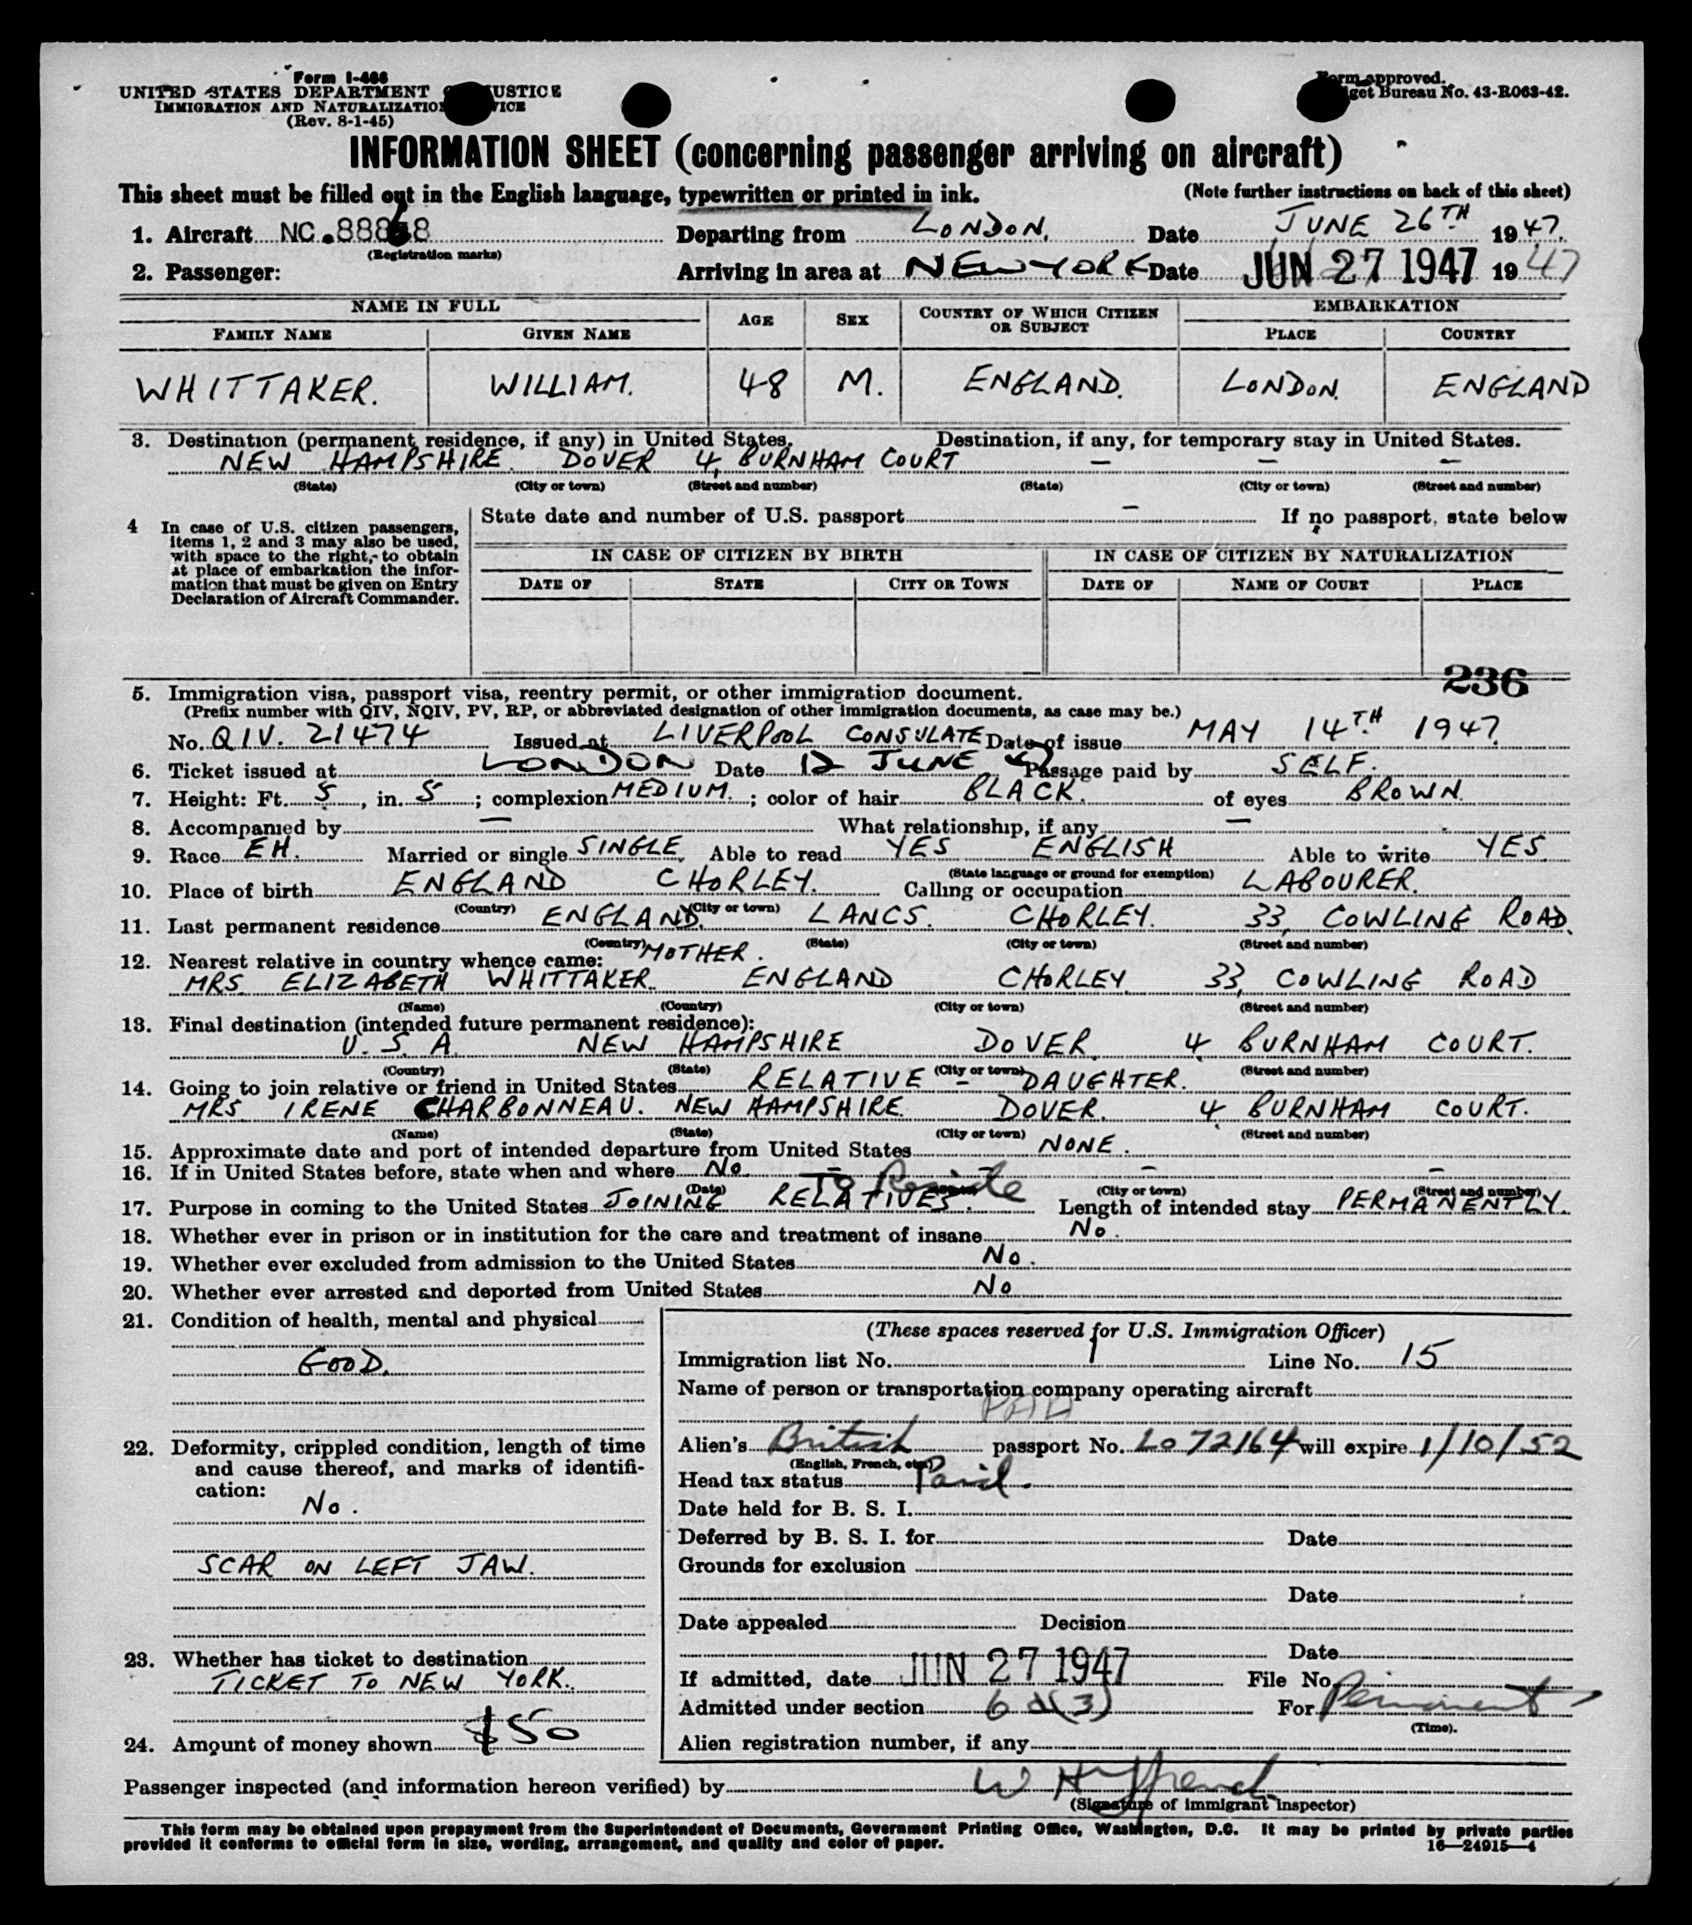 Form I-466
UNITED STATES DEPARTMENT JUSTICE
IMMIGRATION AND NATURALIZATION
(Rev. 8-1-45)
Form approved.
Budget Bureau No. 43-R063-42.
INFORMATION SHEET (concerning passenger arriving on aircraft)
This sheet must be filled out in the English language, typewritten or printed in ink. (Note further instructions on back of this sheet)
1. Aircraft NC.88868 Departing from LONDON. Date JUNE 26TH 1947.
(Registration marks)
2. Passenger: Arriving in area at NEW YORK Date JUN 27 1947 1947
NAME IN FULL AGE SEX COUNTRY OF WHICH CITIZEN OR SUBJECT EMBARKATION
FAMILY NAME GIVEN NAME PLACE COUNTRY
WHITTAKER. WILLIAM. 48 M. ENGLAND. LONDON. ENGLAND
3. Destination (permanent residence, if any) in United States. Destination, if any, for temporary stay in United States.
NEW HAMPSHIRE. DOVER 4, BURNHAM COURT — — —
(State) (City or town) (Street and number) (State) (City or town) (Street and number)
4 In case of U.S. citizen passengers, items 1, 2 and 3 may also be used, with space to the right, to obtain at place of embarkation the information that must be given on Entry Declaration of Aircraft Commander.
State date and number of U.S. passport — If no passport, state below
IN CASE OF CITIZEN BY BIRTH IN CASE OF CITIZEN BY NATURALIZATION
DATE OF STATE CITY OR TOWN DATE OF NAME OF COURT PLACE
236
5. Immigration visa, passport visa, reentry permit, or other immigration document.
(Prefix number with QIV, NQIV, PV, RP, or abbreviated designation of other immigration documents, as case may be.)
No. QIV. 21474 Issued at LIVERPOOL CONSULATE Date of issue MAY 14TH. 1947.
6. Ticket issued at LONDON Date 12 JUNE 47 Passage paid by SELF.
7. Height: Ft. 5, in. 5; complexion MEDIUM.; color of hair BLACK. of eyes BROWN.
8. Accompanied by — What relationship, if any —
9. Race EH. Married or single SINGLE. Able to read YES ENGLISH Able to write YES.
(State language or ground for exemption)
10. Place of birth ENGLAND CHORLEY. Calling or occupation LABOURER.
(Country) (City or town)
11. Last permanent residence ENGLAND. LANCS. CHORLEY. 33, COWLING ROAD.
(Country) (State) (City or town) (Street and number)
12. Nearest relative in country whence came: MOTHER.
MRS. ELIZABETH WHITTAKER. ENGLAND CHORLEY. 33, COWLING ROAD
(Name) (Country) (City or town) (Street and number)
13. Final destination (intended future permanent residence):
U. S. A. NEW HAMPSHIRE DOVER. 4, BURNHAM COURT.
(Country) (State) (City or town) (Street and number)
14. Going to join relative or friend in United States RELATIVE - DAUGHTER.
MRS. IRENE CHARBONNEAU. NEW HAMPSHIRE. DOVER. 4, BURNHAM COURT.
(Name) (State) (City or town) (Street and number)
15. Approximate date and port of intended departure from United States NONE.
16. If in United States before, state when and where No. — — — —
(Date) (City or town) (Street and number)
To Reside
17. Purpose in coming to the United States JOINING RELATIVES. Length of intended stay PERMANENTLY.
18. Whether ever in prison or in institution for the care and treatment of insane No.
19. Whether ever excluded from admission to the United States No.
20. Whether ever arrested and deported from United States No
21. Condition of health, mental and physical
GOOD.
22. Deformity, crippled condition, length of time and cause thereof, and marks of identification:
No.
SCAR ON LEFT JAW.
23. Whether has ticket to destination
TICKET TO NEW YORK.
24. Amount of money shown $50
(These spaces reserved for U.S. Immigration Officer)
Immigration list No. 1 Line No. 15
Name of person or transportation company operating aircraft
PAA
Alien's British passport No. LO72164 will expire 1/10/52
(English, French, etc.)
Head tax status Paid.
Date held for B. S. I.
Deferred by B. S. I. for Date
Grounds for exclusion
Date
Date appealed Decision
Date
If admitted, date JUN 27 1947 File No.
Admitted under section 6 d(3) For Permanent
(Time).
Alien registration number, if any
Passenger inspected (and information hereon verified) by
(Signature of immigrant inspector)
This form may be obtained upon prepayment from the Superintendent of Documents, Government Printing Office, Washington, D.C. It may be printed by private parties
provided it conforms to official form in size, wording, arrangement, and quality and color of paper. 16—24915—4